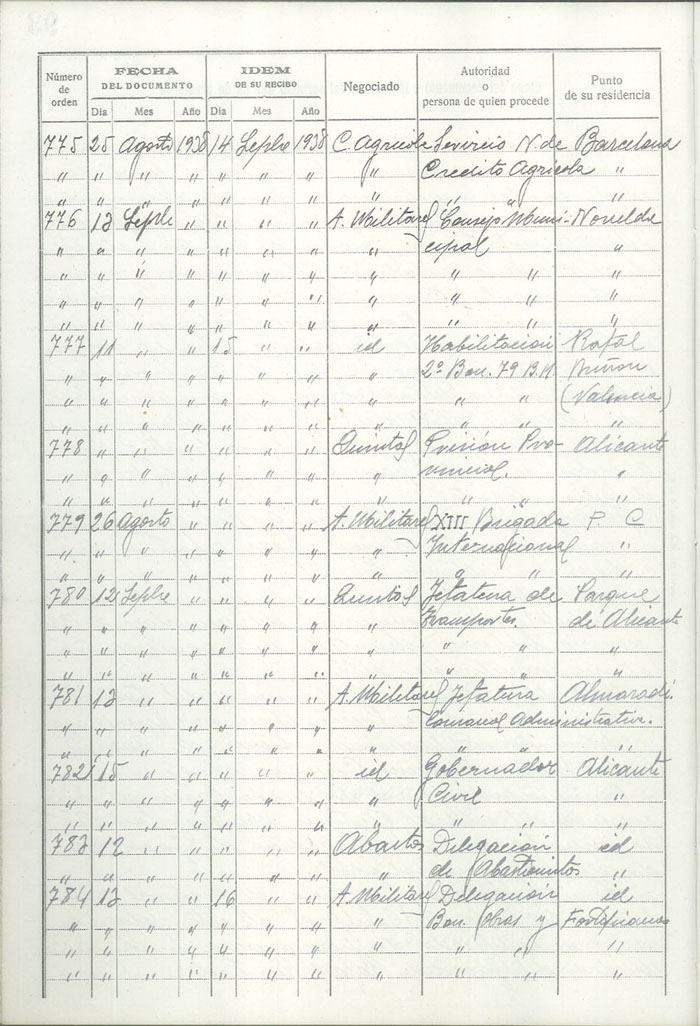 Número de orden FECHA DEL DOCUMENTO IDEM DE SU RECIBO Negociado Autoridad o persona de quien procede Punto de su residencia
Día Mes Año Día Mes Año
775 25 Agosto 1938 14 Sepbre 1938 C. Agricola Servicio N. de Barcelona
" " " " " " " " Credito Agricola "
" " " " " " " " " " "
776 13 Sepbre " " " " A. Militares Consejo Muni- Novelda
" " " " " " " " cipal "
" " " " " " " " " " "
" " " " " " " " " " "
" " " " " " " " " " "
777 11 " " 15 " " id Habilitacion Rafal
" " " " " " " " 2º Bon. 79 B.M
" " " " " " " " " " (Valencia)
" " " " " " " " " " "
778 " " " " " " Quintas Prision Pro- Alicante
" " " " " " " " vincial. "
" " " " " " " " " " "
779 26 Agosto " " " " A. Militares XIII Brigada P. C
" " " " " " " " Internacional "
" " " " " " " " " " "
780 12 Sepbre " " " " Quintas Jefatura de Parque
" " " " " " " " transportes. de Alicante
" " " " " " " " " " "
" " " " " " " " " " "
781 13 " " " " " A. Militares Jefatura Almoradi.
" " " " " " " " Comarcal Administrativa.
" " " " " " " " " " "
782 15 " " " " " id Gobernador Alicante
" " " " " " " " Civil "
" " " " " " " " " " "
783 12 " " " " " Abastos Delegación id
" " " " " " " " de Abastimientos "
784 13 " " 16 " " A. Militares Delegación id
" " " " " " " " Bon. Obras y Fortificaciones
" " " " " " " " " " "
" " " " " " " " " " "